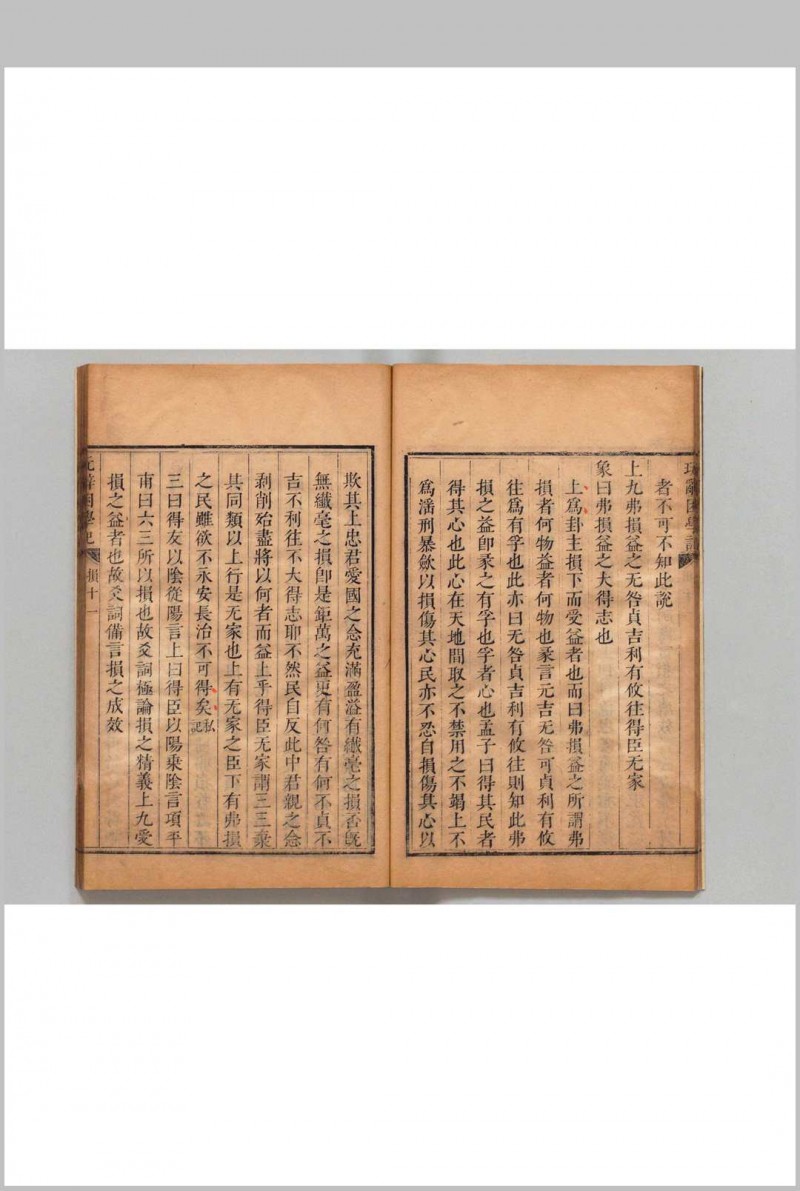 者不可不知此說
上九弗損益之无咎貞吉利有攸往得臣无家
象曰弗損益之大得志也
上爲卦主損下而受益者也而曰弗損益之所謂弗
損者何物也益者何物也彖言元吉无咎可貞利有攸
往爲有孚也此亦曰无咎貞吉利有攸往則知此弗
損之益卽彖之有孚也孚者心也孟子曰得其民者
得其心也此心在天地間取之不禁用之不竭上不
爲淫刑暴歛以損傷其心民亦不忍自損傷其心以
欺其上忠君愛國之念充滿盈溢有纎毫之損否旣
無纎毫之損卽是鉅萬之益更有何咎有何不貞不
吉不利往不大得志耶不然民自反此中君親之念
剥削殆盡將以何者而益上乎得臣无家謂三三衆
其同類以上行是无家也上有无家之臣下有弗損
之民雖欲不永安長治不可得矣 私記
三曰得友以陰從陽言上曰得臣以陽乘陰言項平
甫曰六三所以損也故爻詞極論損之精義上九受
損之益者也故爻詞備言損之成效
損十一